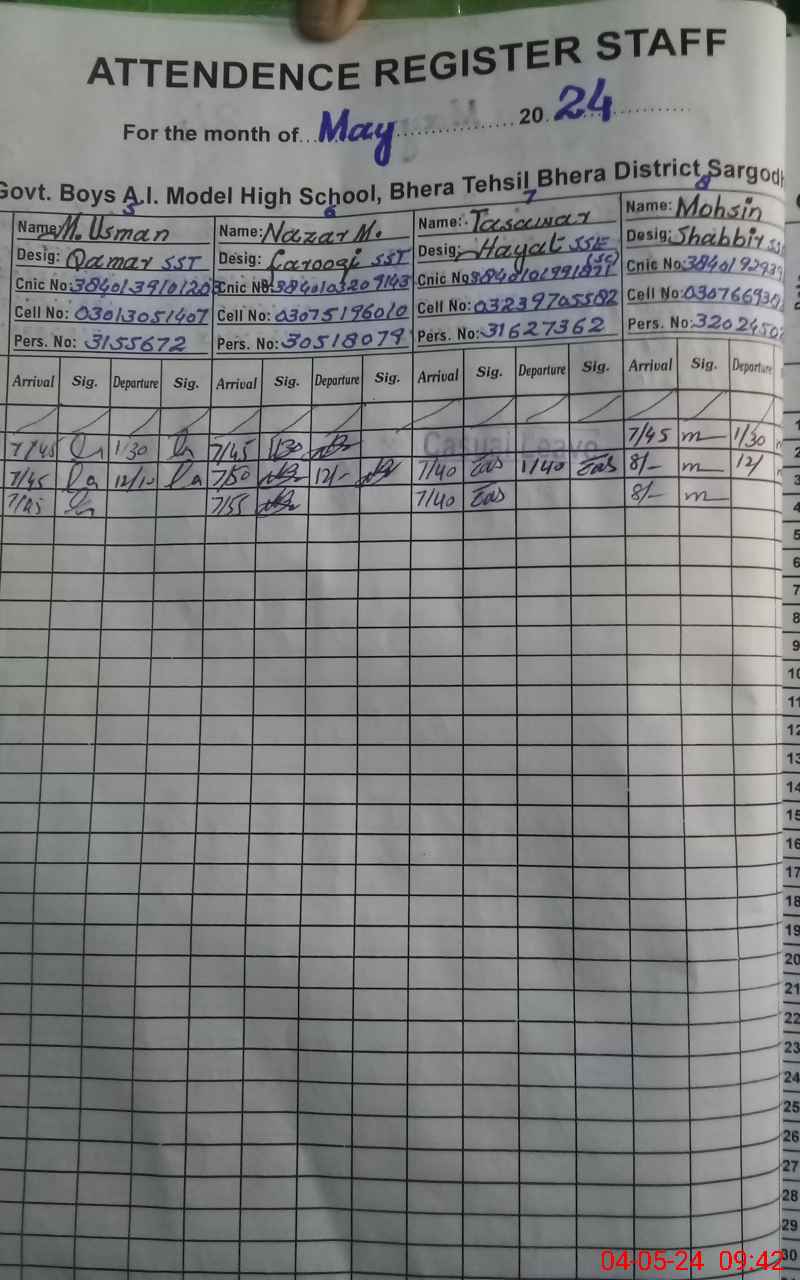 ATTENDENCE REGISTER STAFF
For the month of... May ............... 20.24.............
Govt. Boys A.I. Model High School, Bhera Tehsil Bhera District Sargodh
5 6 7 8
Name: M. Usman Name: Nazar M. Name: Tasawar Name: Mohsin
Desig: Qamar SST Desig: Farooqi SST Desig: Hayat SSE (SC) Desig: Shabbir SS
Cnic No: 3840139101203 Cnic No: 3840103209143 Cnic No: 3840101991871 Cnic No: 384019293
Cell No: 03013051407 Cell No: 03075196010 Cell No: 03239705582 Cell No: 030766930
Pers. No: 3155672 Pers. No: 30518079 Pers. No: 31627362 Pers. No: 3202450
Arrival Sig. Departure Sig. Arrival Sig. Departure Sig. Arrival Sig. Departure Sig. Arrival Sig. Departure
1
7/45 1/30 7/45 1/30 Casual Leave 7/45 m 1/30 2
7/45 12/10 7/50 12/- 7/40 1/40 8/- m 12/ 3
7/45 7/55 7/40 8/- m 4
5
6
7
8
9
10
11
12
13
14
15
16
17
18
19
20
21
22
23
24
25
26
27
28
29
30
04-05-24 09:42